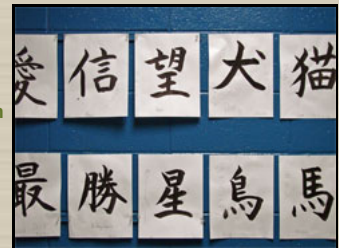 愛 信 望 犬 猫
最 勝 星 鳥 馬